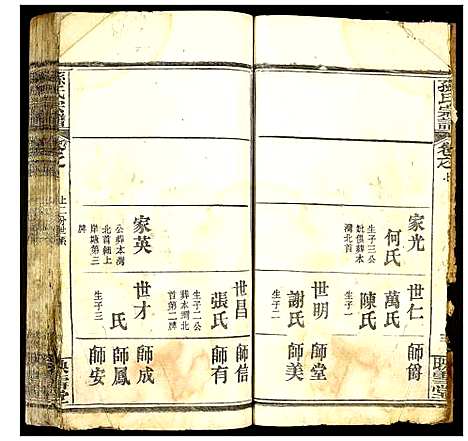 孫氏宗譜
卷之七
家光
何氏
生子三公
妣俱葬本
灣北首
世仁
萬氏
陳氏
生子一
師爵
世明
謝氏
生子二
師堂
師美
映雪堂
孫氏宗譜
卷之
世昌
張氏
生子二公
葬本灣北
首第二牌
師信
師有
家英
公葬本灣
北首細上
岸墩第三
牌
世才
氏
生子三
師成
師鳳
師安
映雪堂